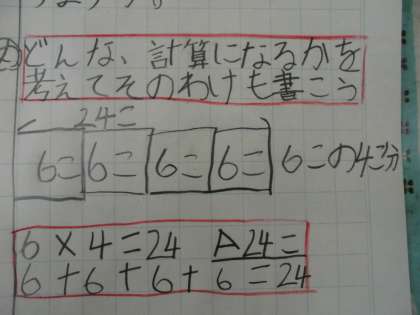 どんな、計算になるかを
考えてそのわけも書こう
24こ
6こ 6こ 6こ 6こ 6この4こ分
6×4=24 A24こ
6+6+6+6=24